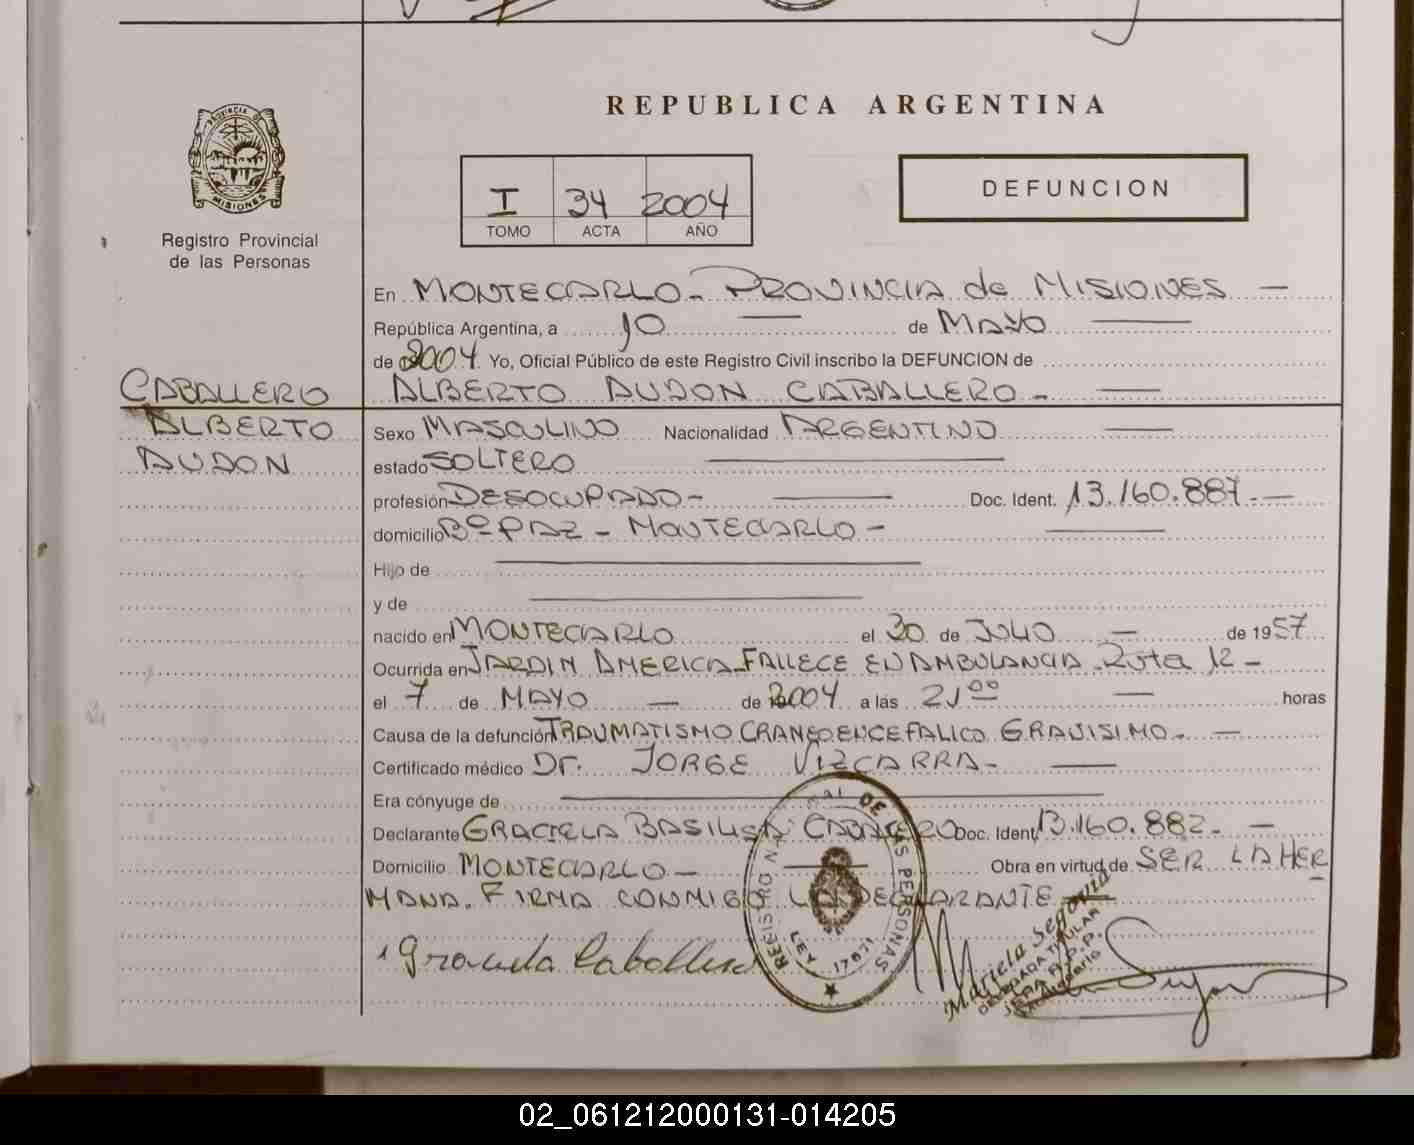 REPUBLICA ARGENTINA
PROVINCIA DE MISIONES
Registro Provincial
de las Personas
I 34 2004
TOMO ACTA AÑO
DEFUNCION
En MONTECARLO - PROVINCIA de MISIONES —
República Argentina, a 10 — de MAYO —
de 2004. Yo, Oficial Público de este Registro Civil inscribo la DEFUNCION de
CABALLERO
ALBERTO AUDON CABALLERO - —
ALBERTO
AUDON
Sexo MASCULINO Nacionalidad ARGENTINO —
estado SOLTERO —
profesión DESOCUPADO - — Doc. Ident. 13.160.887 - —
domicilio Bº PAZ - MONTECARLO - —
Hijo de —
y de —
nacido en MONTECARLO el 30 de JULIO — de 1957
Ocurrida en JARDIN AMERICA - FALLECE EN AMBULANCIA Ruta 12 -
el 7 de MAYO — de 2004 a las 21 00 — horas
Causa de la defunción TRAUMATISMO CRANEOENCEFALICO GRAVISIMO - —
Certificado médico Dr. JORGE VIZCARRA - —
Era cónyuge de —
Declarante GRACIELA BASILISA CABALLERO Doc. Ident. 13.160.882 - —
Domicilio MONTECARLO — Obra en virtud de SER LA HER
MANA. FIRMA CONMIGO LA DECLARANTE —
Graciela Caballero
REGISTRO NACIONAL DE LAS PERSONAS
LEY 17671
Mariela Segovia
DELEGADA TITULAR
02_061212000131-014205